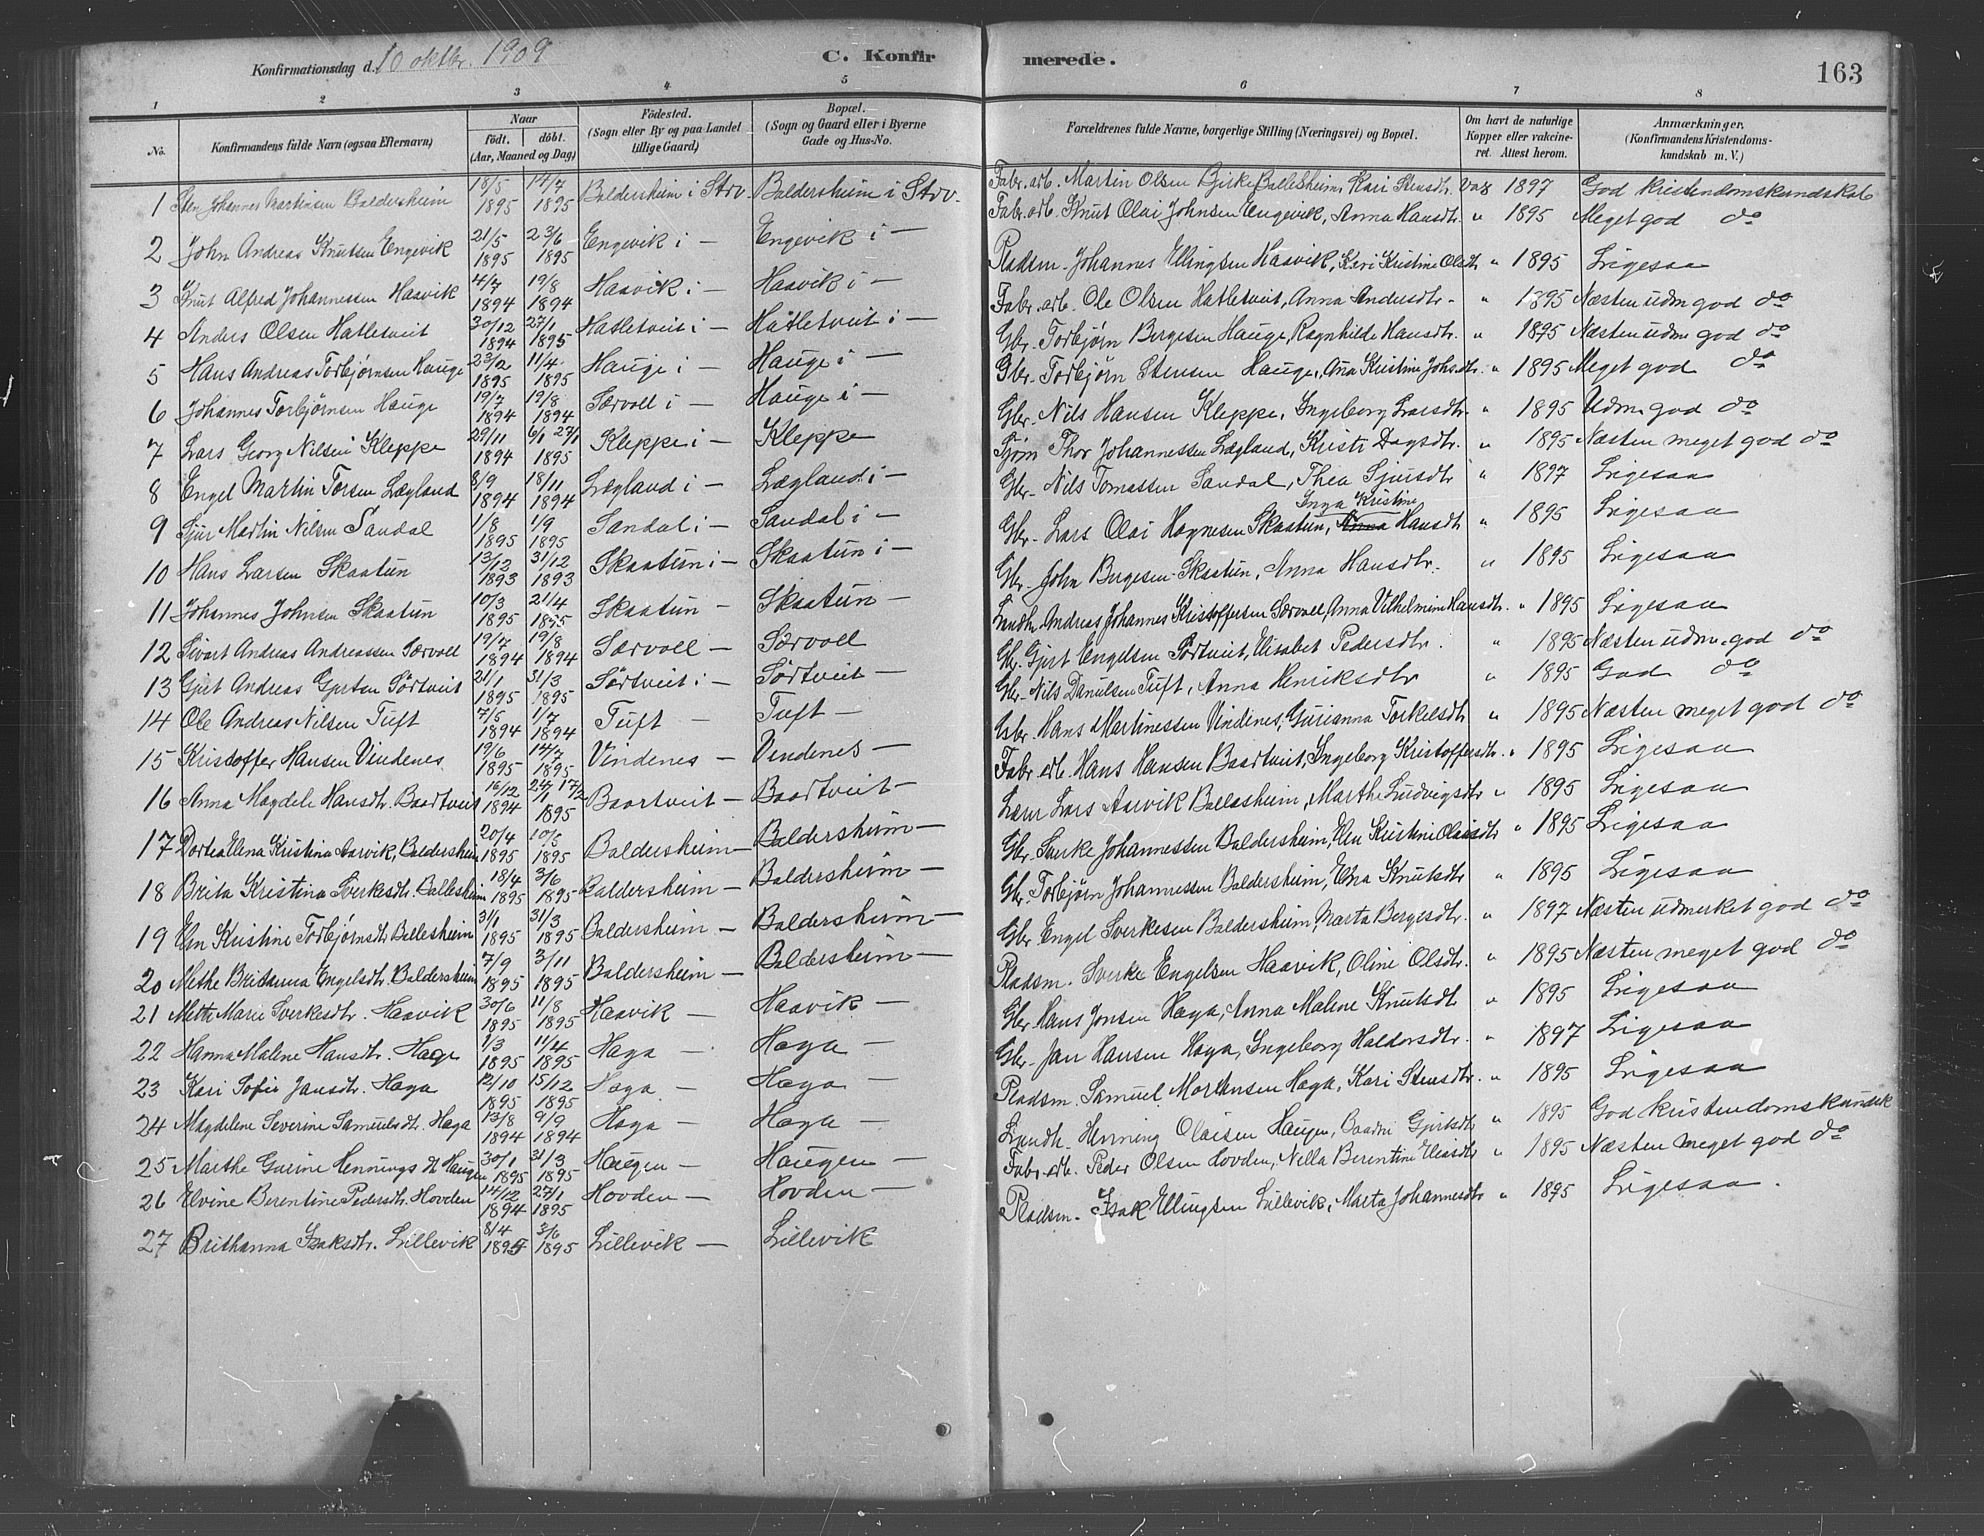 Konfirmationsdag d. 10 oktbr. 1909
C. Konfirmerede.
163
1 2 3 4 5 6 7 8
No. Konfirmandens fulde Navn (ogsaa Efternavn) Naar født. døbt. (Aar, Maaned og Dag) Fødested. (Sogn eller By og paa Landet tillige Gaard) Bopæl. (Sogn og Gaard eller i Byerne Gade og Hus-No. Forældrenes fulde Navne, borgerlige Stilling (Næringsvei) og Bopæl. Om havt de naturlige Kopper eller vakcineret. Attest herom. Anmærkninger. (Konfirmandens Kristendomskundskab m. V.)
1 Sten Johannes Martinsen Baldersheim 18/5 1895 14/7 1895 Baldersheim i Strv. Baldersheim i Strv. Fabr. arb. Martin Olsen Bjirke Ballesheim, Kari Stensdtr. vax 1897 God kristendomskundskab
2 John Andreas Knutsen Engevik 21/5 1895 23/6 1895 Engevik i — Engevik i — Fabr. arb. Knut Olai Johnsen Engevik, Anna Hansdtr. " 1895 Meget god do
3 Knut Alfred Johannessen Haavik 4/7 1894 19/8 1894 Haavik i — Haavik i — Pladsm. Johannes Ellingsen Haavik, Kari Kristine Olsdtr " 1895 Ligesaa
4 Anders Olsen Hatletveit 30/12 1894 27/1 1895 Hatletveit i — Hatletveit i — Fabr. arb. Ole Olsen Hatletveit, Anna Andersdtr. " 1895 Næsten udm god do
5 Hans Andreas Torbjørnsen Hauge 23/2 1895 11/4 1895 Hauge i — Hauge i — Gbr. Torbjørn Bergesen Hauge, Ragnhilde Hansdtr. " 1895 Næsten udm god do
6 Johannes Torbjørnsen Hauge 19/7 1894 19/8 1894 Særvoll i — Hauge i — Gbr. Torbjørn Stensen Hauge, Ana Kristine Johs.dtr. " 1895 Meget god do
7 Lars Georg Nilsen Kleppe 29/11 1894 6/1 27/1 1895 Kleppe i — Kleppe Gbr. Nils Hansen Kleppe, Ingeborg Larsdtr. " 1895 Udm. god do
8 Engel Martin Torsen Lægland 8/9 1894 18/11 1894 Lægland i — Lægland i — Sjøm Thor Johannessen Lægland, Kristi Dagsdtr. " 1895 Næsten meget god do
9 Sjur Martin Nilsen Sandal 1/8 1895 1/9 1895 Sandal i — Sandal i — Gbr. Nils Tomassen Sandal, Thea Sjursdtr " 1897 Ligesaa
10 Hans Larsen Skaatun 13/12 1893 31/12 1893 Skaatun i — Skaatun i — Gbr. Lars Olai Hagnesen Skaatun, Inga Kristine Anna Hansdt " 1895 Ligesaa
11 Johannes Johnsen Skaatun 10/3 1895 21/4 1895 Skaatun — Skaatun — Gbr. John Bergesen Skaatun, Anna Hansdtr. " 1895 Ligesaa
12 Sivart Andreas Andreassen Særvoll 19/7 1894 19/8 1894 Særvoll — Særvoll Andreas Johannes Kristoffersen Særvoll, Anna Vilhelmine Hansdtr. " 1895 Ligesaa
13 Gjert Andreas Gjertsen Sørtveit 21/1 1895 31/3 1895 Sørtveit i — Sørtveit — Gbr. Gjert Engelsen Sørtveit, Elisabet Pedersdtr. " 1895 Næsten udm. god do
14 Ole Andreas Nilsen Tuft 7/5 1894 1/7 1894 Tuft — Tuft — Gbr. Nils Danielsen Tuft, Anna Henriksdtr " 1895 God do
15 Krisdoffer Hansen Vindenes 19/6 1895 14/7 1895 Vindenes — Vindenes — Gbr. Hans Martinessen Vindenes, Gurianna Torkelsdt " 1895 Næsten meget god do
16 Anna Magdele Hansdt. Baartveit 16/12 1894 24/1 17/2 1895 Baartveit — Baartveit — Fabr. arb. Hans Hansen Baartveit, Ingeborg Kristoffersdtr. " 1895 Ligesaa
17 Dortea Elena Kristina Aarvik, Baldersheim 20/4 1895 10/5 1895 Baldersheim — Baldersheim — Lars Aarvik Ballesheim, Marthe Ludvigsdtr " 1895 Ligesaa
18 Brita Kristina Sverkesdt. Ballesheim 18/4 1895 3/6 1895 Baldersheim — Baldersheim — Gbr. Sverke Johannessen Baldersheim, Elen Kristine Olaisdtr " 1895 Ligesaa
19 Elen Kristine Torbjørnsdt Ballesheim 31/1 1895 31/3 1895 Baldersheim — Baldersheim — Gbr. Torbjørn Johannessen Baldersheim, Elna Knutsdtr " 1895 Ligesaa
20 Methe Britanna Engelsdt. Baldersheim 7/9 1895 3/11 1895 Baldersheim — Baldersheim — Gbr. Engel Sverkesen Baldersheim, Marta Bergesdtr. " 1897 Næsten udmerket god do
21 Mette Marie Sverkesdtr. Haavik 30/6 1895 11/8 1895 Haavik — Haavik — Pladsm. Sverke Engelsen Haavik, Oline Olsdtr. " 1895 Næsten meget god do
22 Hanna Malene Hansdtr. Haga 1/3 1895 11/4 1895 Haga — Haga — Gbr. Hans Jonsen Haga, Anna Malene Knutsdt " 1895 Ligesaa
23 Kari Sofie Jansdtr. Haga 12/10 1895 15/12 1895 Haga — Haga — Gbr. Jan Hansen Haga, Ingeborg Haldorsdtr. " 1897 Ligesaa
24 Magdelene Severine Samuelsdt. Haga 13/8 1894 9/9 1894 Haga — Haga — Pladsm. Samuel Mortensen Haga, Kari Stensdtr. " 1895 Ligesaa
25 Marthe Gurine Hennings dt Haugen 30/1 1895 31/3 1895 Haugen — Haugen — Henning Olaisen Haugen, Gjertsdt " 1895 God kristendomskundsk
26 Elvine Berentine Pedersdtr. Hovden 14/12 1894 27/1 1895 Hovden — Hovden — Fabr. arb. Peder Olsen Hovden, Nella Berentine Eliasdtr " 1895 Næsten meget god do
27 Brithanna Isaksdtr. Lillevik 8/4 1895 3/6 1895 Lillevik — Lillevik Pladsm. Isak Ellingsen Lillevik, Marta Johannesdtr " 1895 Ligesaa.